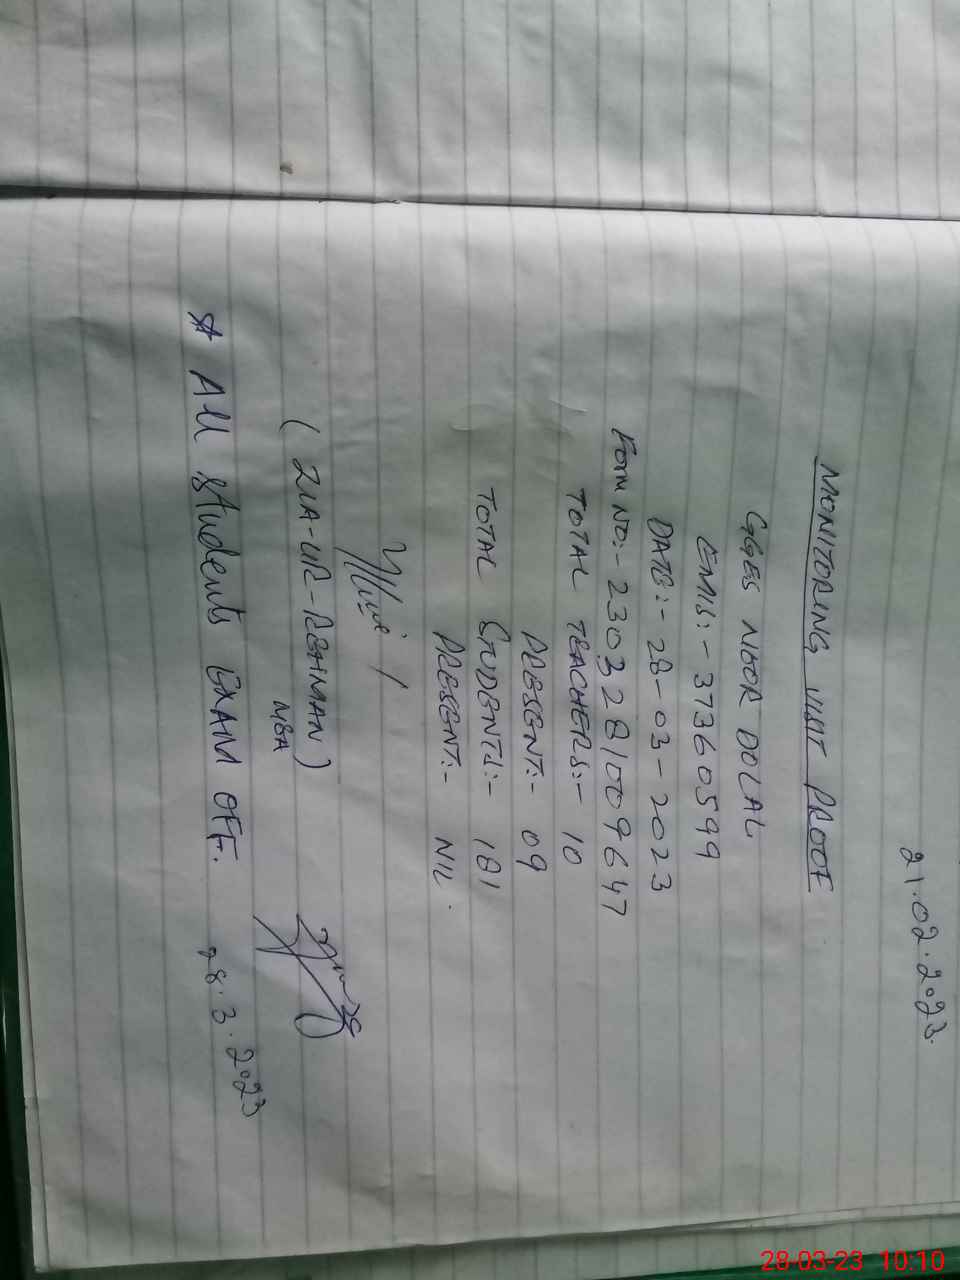 21.02.2023.
MONITORING VISIT PROOF
GGES NOOR DOLAL
EMIS:- 37360599
DATE:- 28-03-2023
Form NO:- 23032810009647
TOTAL TEACHERS:- 10
PRESENT:- 09
TOTAL STUDENTS:- 181
PRESENT:- NIL.
(ZIA-UR-REHMAN)
MEA
* All students EXAM OFF.
28.3.2023
28-03-23 10:10